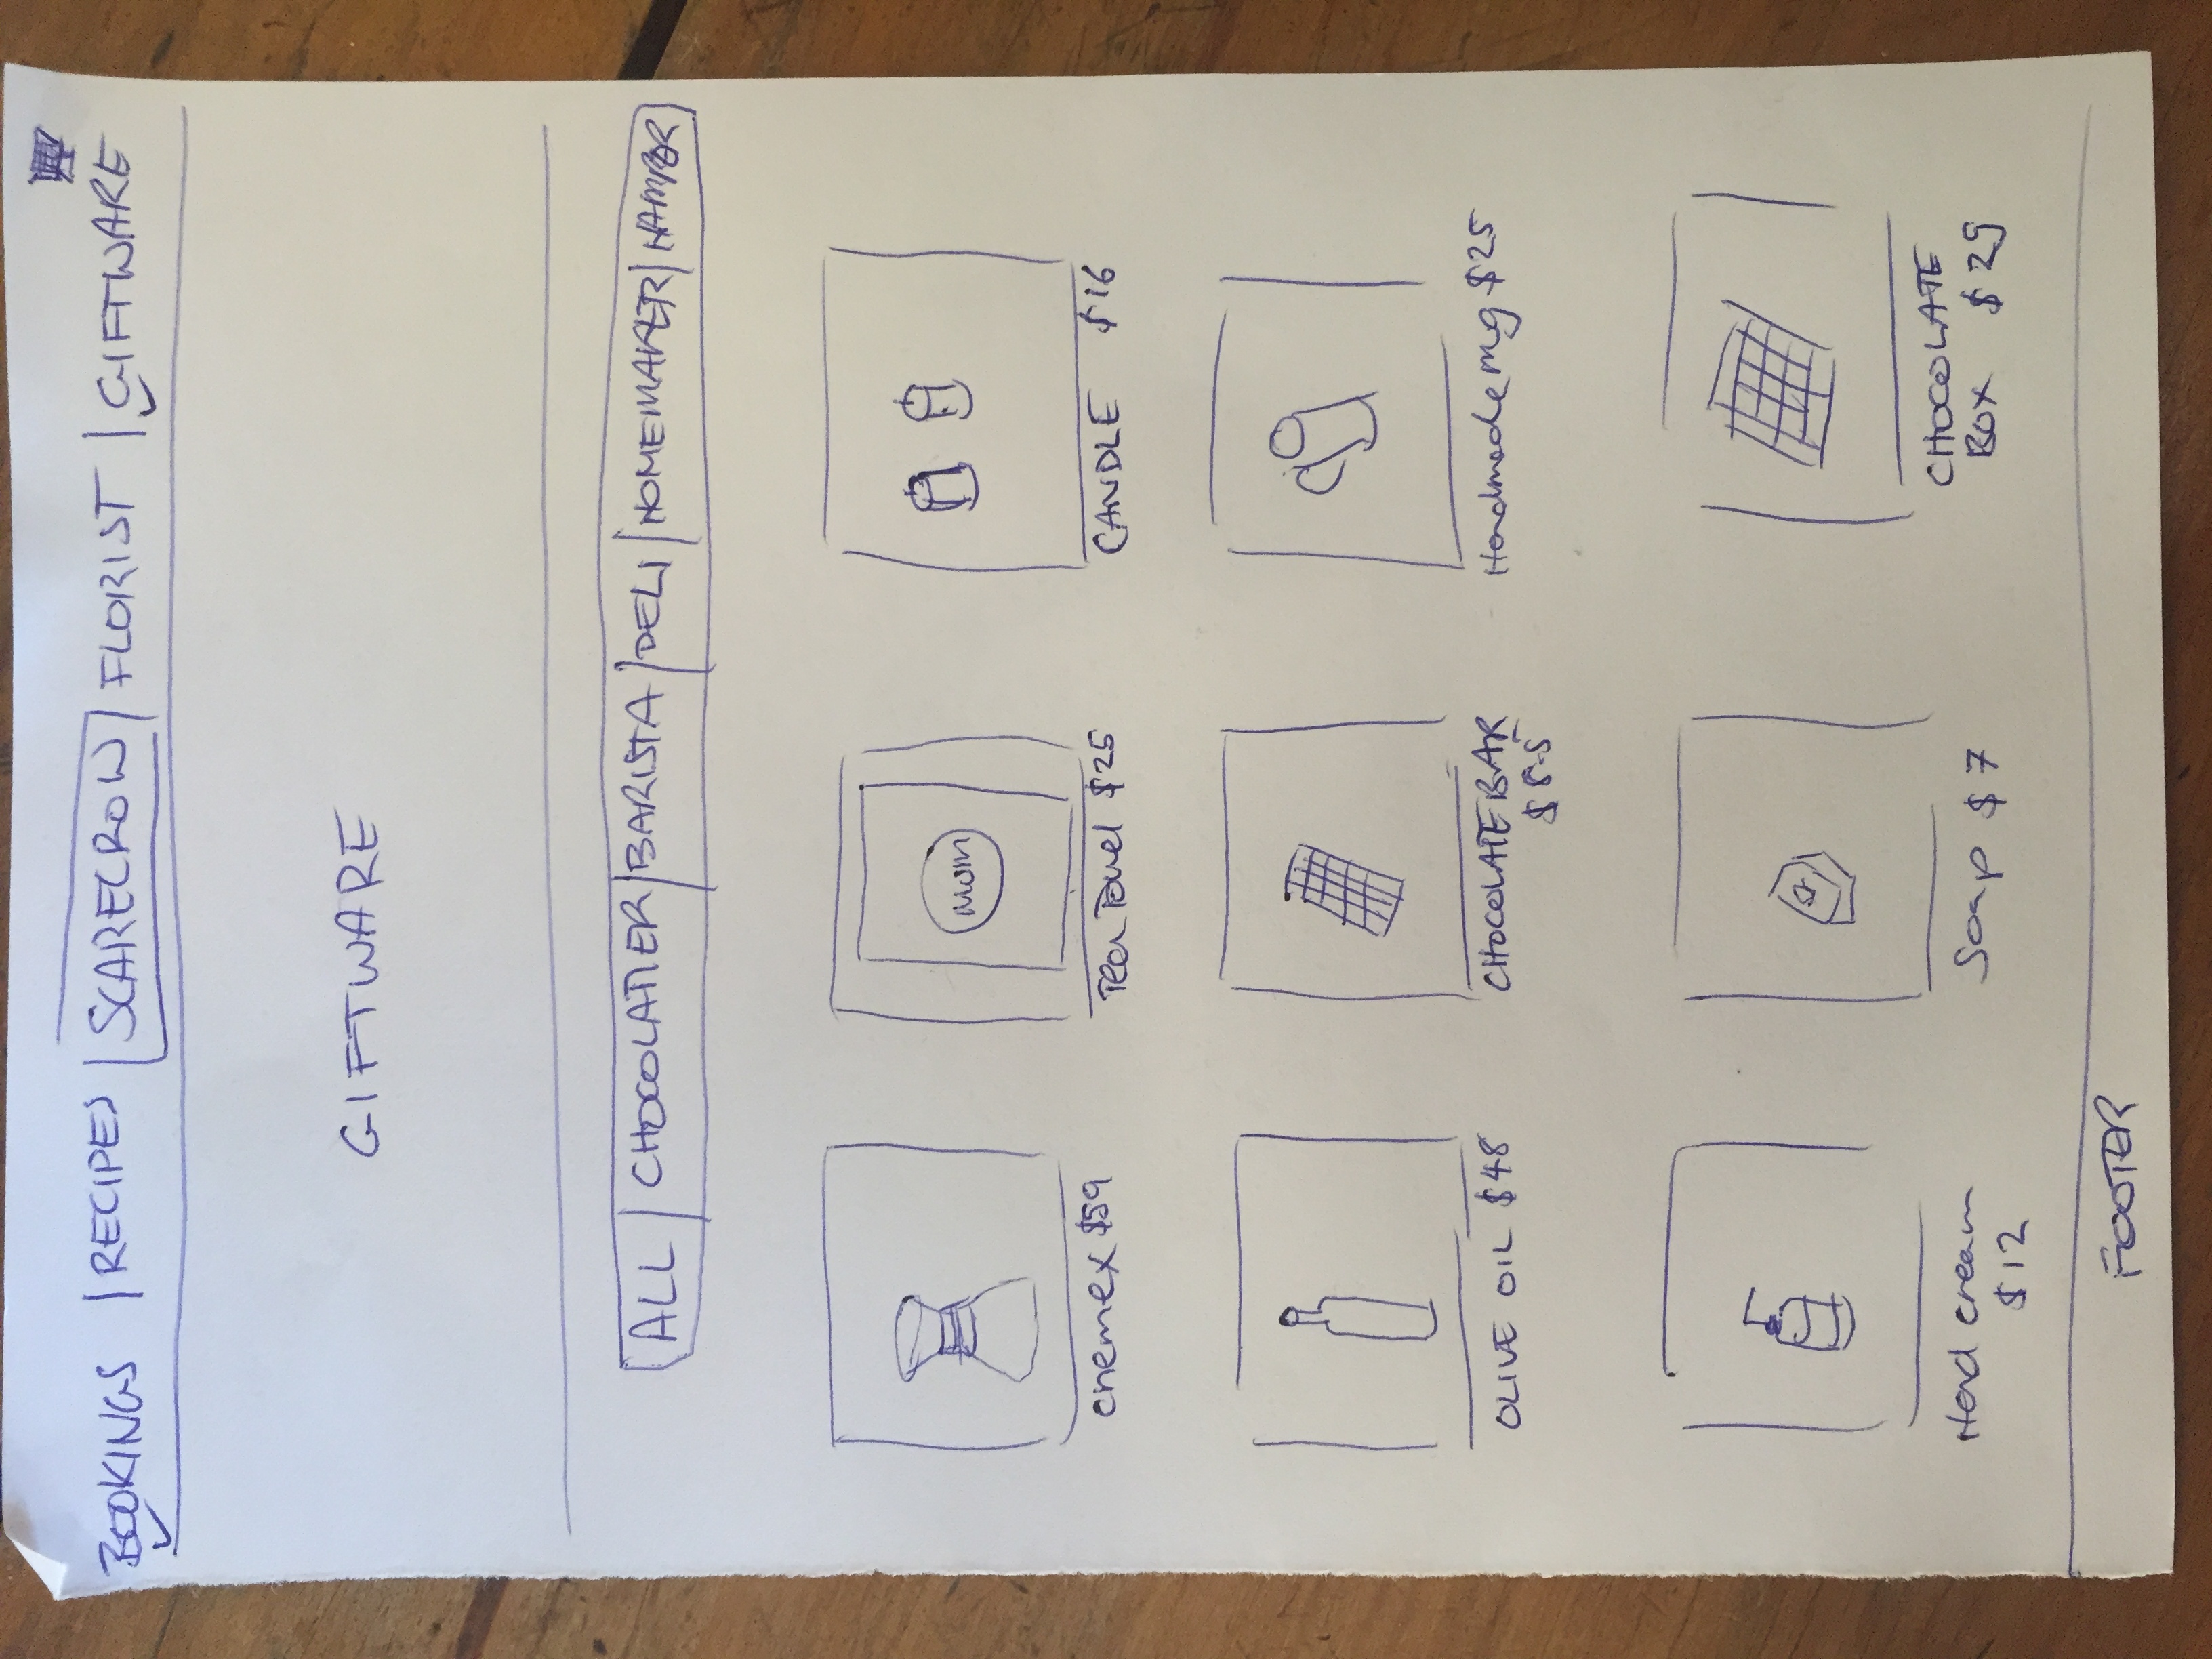 BOOKINGS | RECIPES | SCARECROW | FLORIST | GIFTWARE
GIFTWARE
ALL | CHOCOLATIER | BARISTA | DELI | HOMEMAKER | HAMPER
MOM
chemex $59
Tea Towel $25
CANDLE $16
OLIVE OIL $48
CHOCOLATE BAR
$8.5
Handmade mug $25
Hand cream
$12
Soap $7
CHOCOLATE
BOX $29
FOOTER